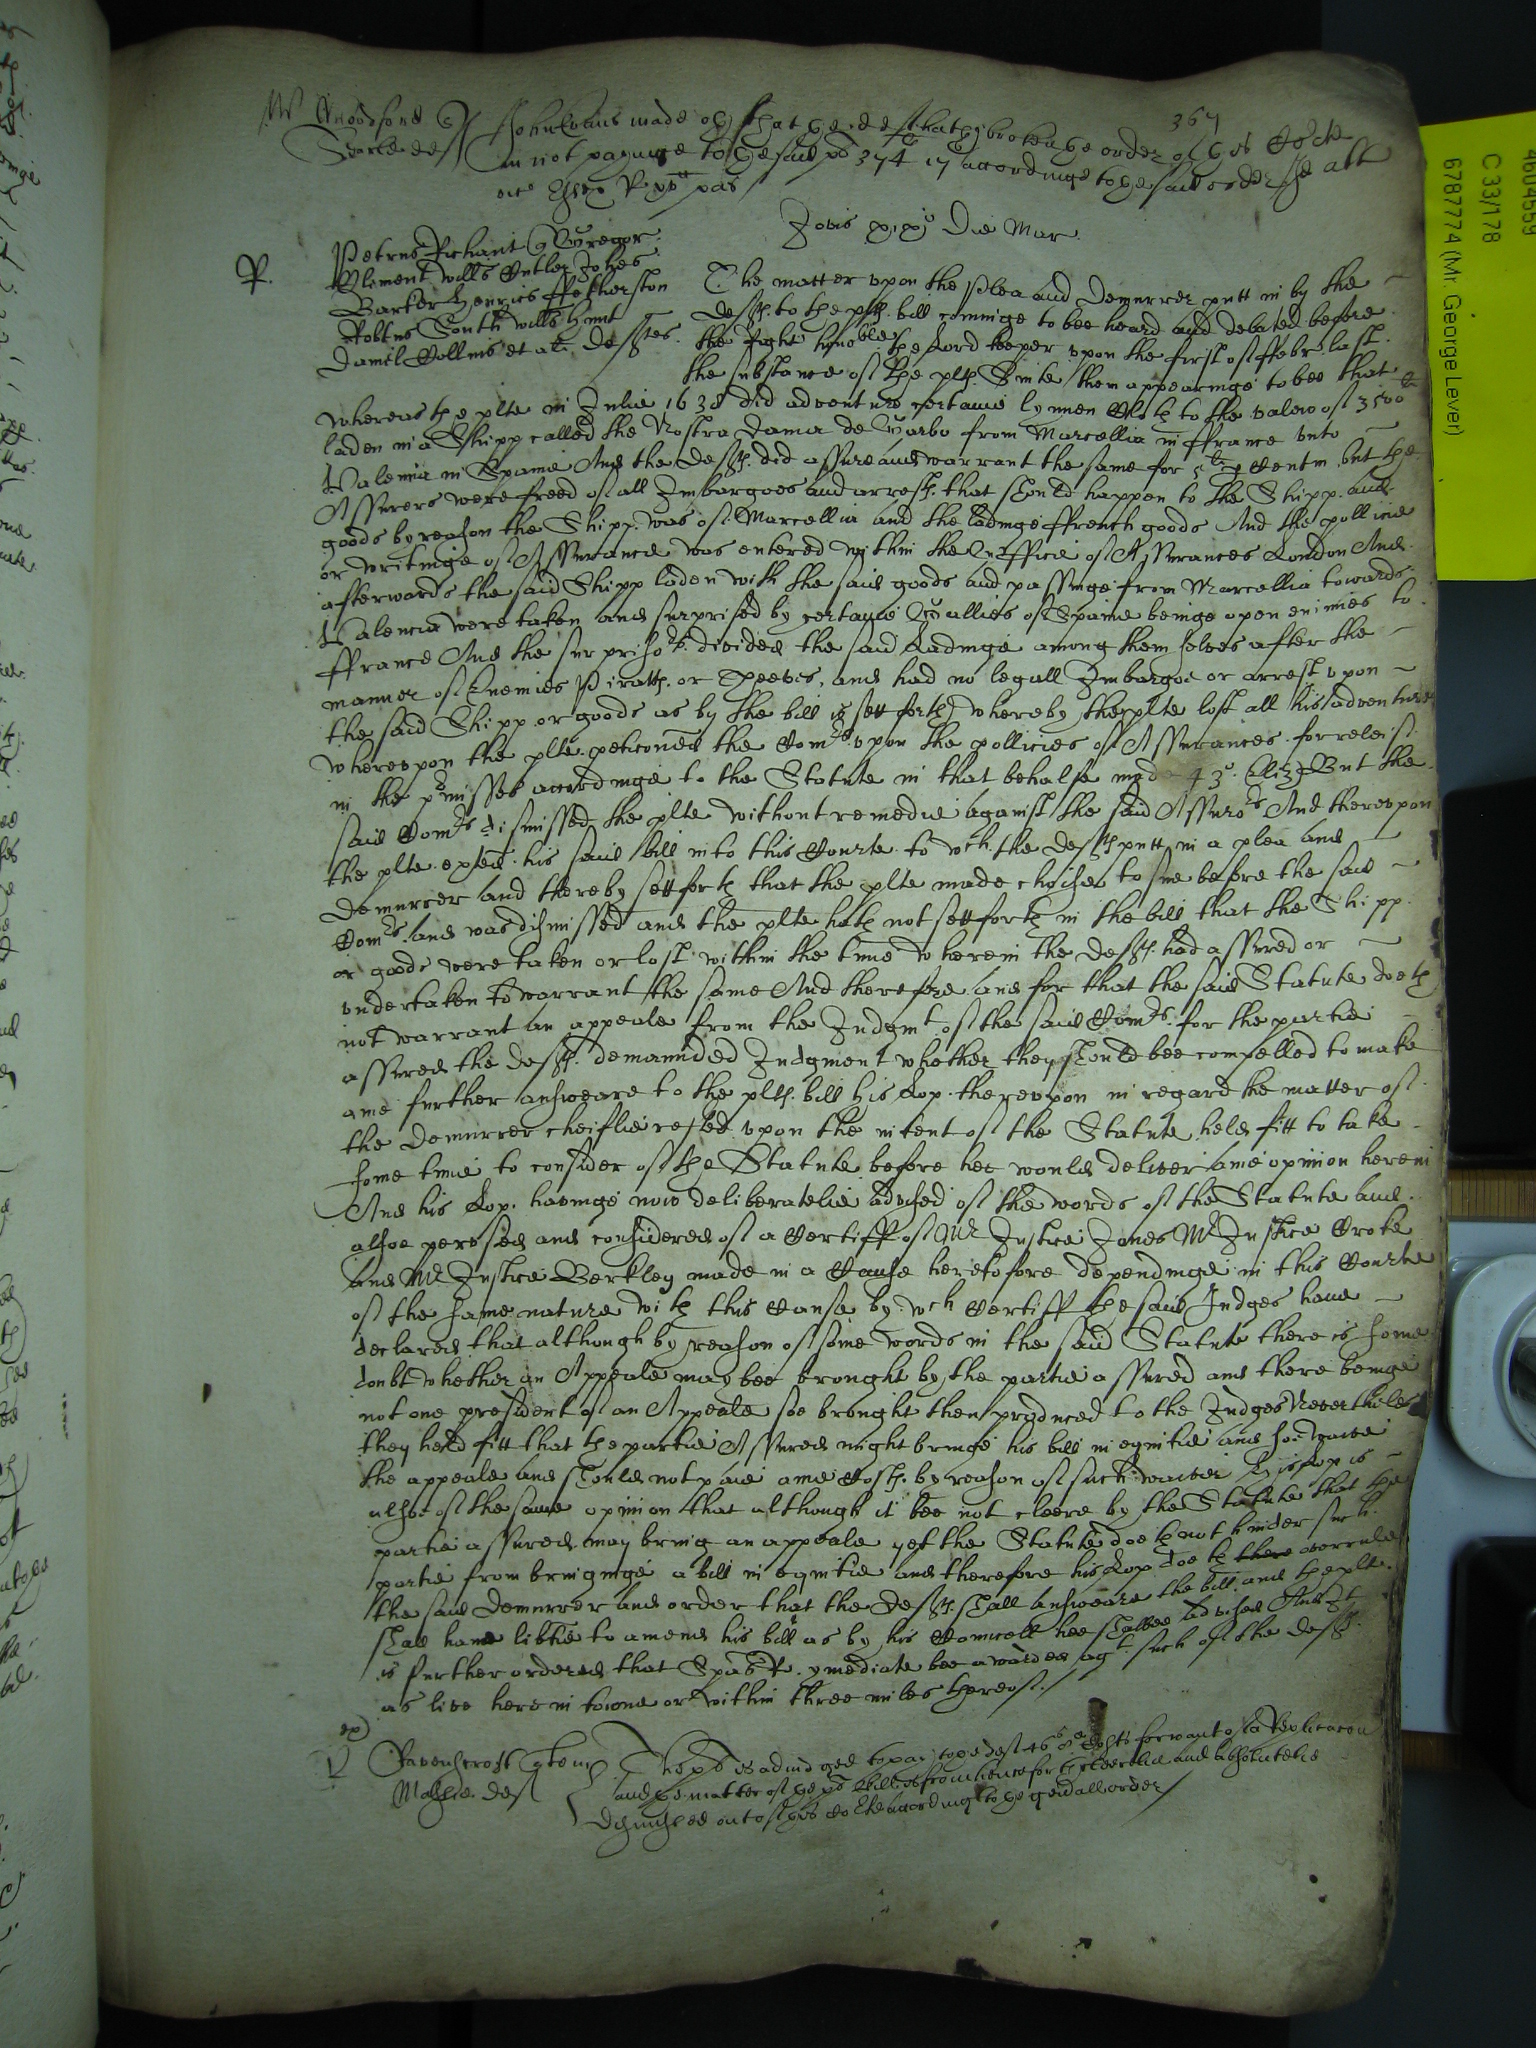 367
W Woodford q John Evans made oath that the deft hath broken the order of this Co:rte
Searle deft in not payinge to the said pl 374 li 17 accordinge to the said order the att
Jovis xxj Die Mar.
R. Petrus Richaut q Gregor.
Clement wills Cutler Johes
Barker Henrics ffetherston
Robtus South wills Hunt
Daniel Collins et al. Deftes.
The matter vpon the Plea and Demurrer putt in by the
Defts. to the plts. bill comminge to bee heard and debated before
the Right honoble the Lord Keeper vpon the first of ffebr. last.
the substance of the plts. Suite then appearinge to bee that
whereas the plte in Julie 1638 did adventure certaine lynnen Cloth to the valew of 3500 li
laden in a Shipp called the Nostra Dama de Garbo from Marcellia in ffrance vnto
Valencia in Spaine And the Defts. did assure and warrant the same for 5 li p Centm but the
Assurers were freed of all Imbargoes and arrests. that should happen to the Shipp. and
goods by reason the Shipp. was of Marcellia and the ladinge ffrench goods And the pollicie
or writinge of Assurance was entered within the Office of Assurances London And
afterwards the said Shipp laden with the said goods and passinge from Marcellia towards
Valencia were taken and surprised by certaine Gallies of Spaine beinge open enimies to
ffrance And the surprisors. divided the said Ladinge among them selves after the
manner of Enemies Piratts. or Theeves, and had no legall Imbargoe or arrest vpon
the said Shipp or goods as by the bill is sett forth whereby the plte lost all his adventure
wherevpon the plte peticoned the Comrs. vpon the pollicies of Assurances for releif
in the p:misses accordinge to the Statute in that behalfe made 43o. Eliz: But the
said Comrs dismissed the plte without remedie against the said Assurors And therevpon
the plte exhted. his said bill into this Courte to wch. the Defts putt in a plea and
Demurrer and thereby sett forth that the plte made choise to sue before the said
Comrs. and was dismissed and the plte hath not sett forth in the bill that the Shipp
or goods were taken or lost within the time wherein the Defts. had assured or
vndertaken to warrant the same And therefore and for that the said Statute doeth
not warrant an appeale from the Judgmt of the said Comrs. for the partie
assured the Defts. demaunded Judgment whether they should bee compelled to make
anie further answeare to the plts. bill his Lop. therevpon in regard the matter of
the Demurrer cheiflie rested vpon the intent of the Statute held fitt to take
some time to consider of the Statute before hee would deliver anie opinion herein
And his Lop. havinge now deliberatelie advised of the words of the Statute and
alsoe perused and considered of a Certiff of Mr Justice Jones Mr Justice Croke
and Mr Justice Berkley made in a Cause heretofore dependinge in this Courte
of the same nature with this Cause by wch Certiff the said Judges have
declared that although by reason of some words in the said Statute there is some
doubt whether an Appeale may bee brought by the partie assured and there beinge
not one president of an Appeale soe brought then produced to the Judges Neverthelesse
they held fitt that the partie Assured might bringe his bill in equitie and soe waive
the appeale and should not paie anie Costs. by reason of such waiver his Lop is
alsoe of the same opinion that although it bee not cleere by the Statute that the
partie assured may bring an appeale yet the Statute doeth not hinder such
partie from bringinge a bill in equitie and therefore his Lop doeth there overrule
the said Demurrer and order that the Defts. shall answeare the bill and the plte.
shall have libtie to amend his bill as by his Councell hee shalbee advised And It
is further ordered that Spas R. ymediate bee awarded agt. such of the Defts.
as live here in towne or within three miles thereof./
Ravenscroft
Massie. def
The pl is adiudged to pay to the deft 46s 8d Costs for want of a Replicacon
and the matter of the pl bill is from henceforth cleerelie and absolutelie
dismissed out of this Co:rte accordinge to the generall order
4604559
C 33/178
6787774 (Mr. George Lever)